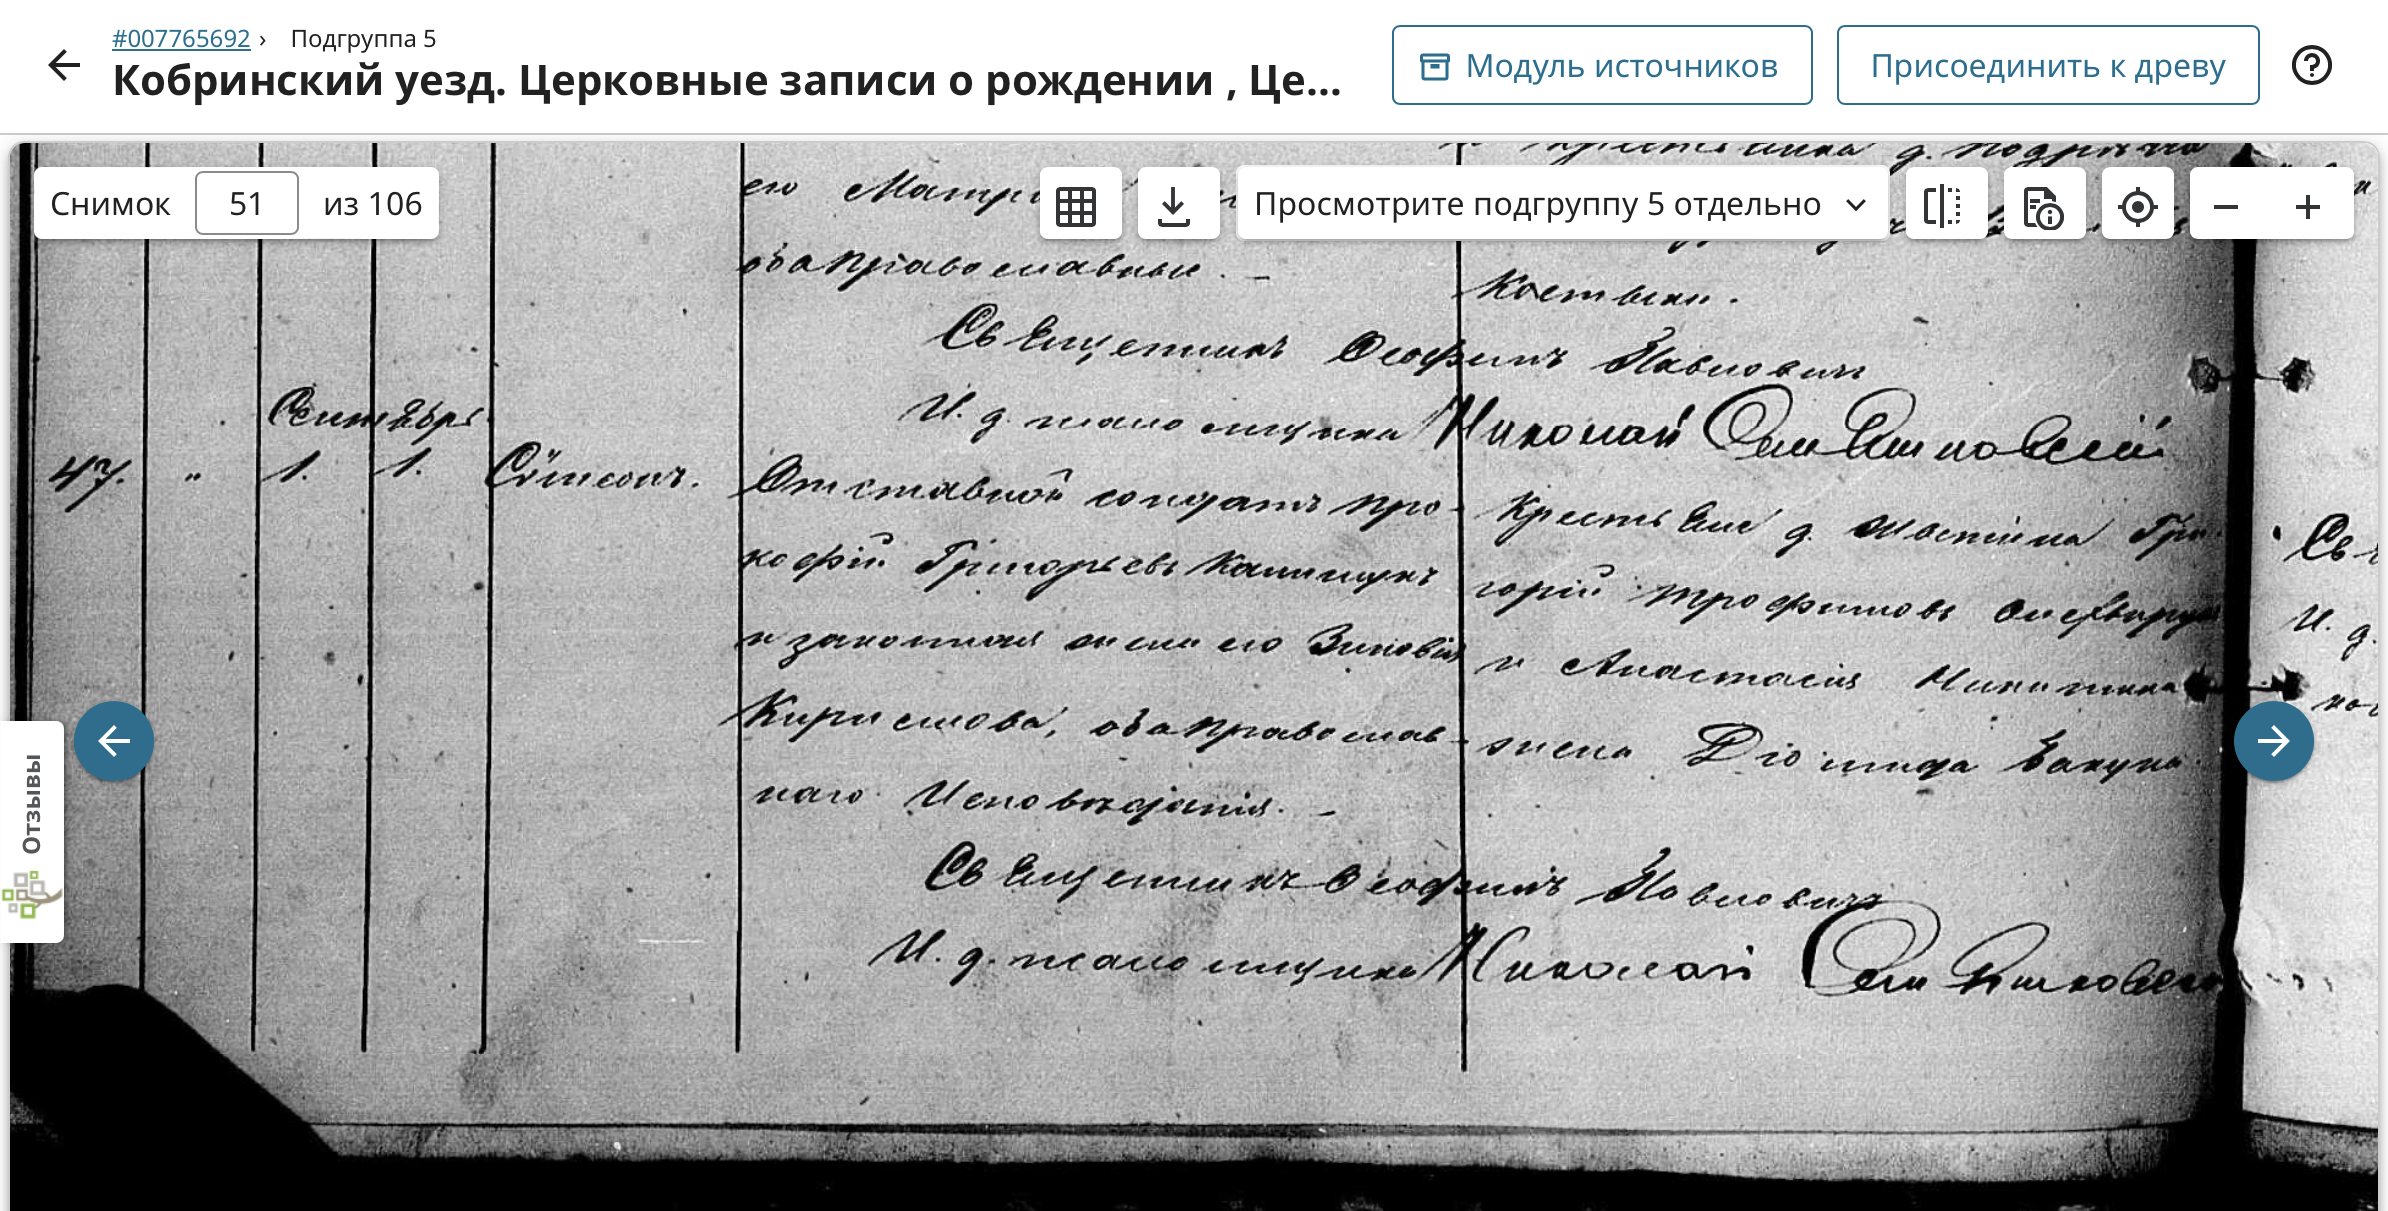 #007765692 › Подгруппа 5
Кобринский уезд. Церковные записи о рождении , Це...
Модуль источников
Присоединить к древу
Снимок 51 из 106
Просмотрите подгруппу 5 отдельно
Отзывы
его
оба православные. -
Костыки.
Священникъ Ѳеофилъ Павловичъ
И. д. псаломщика Николай
Сентябрь
47. " 1. 1. Сѵмеонъ.
Отставной солдатъ Про-
кофій Григорьевъ Калищукъ
и законная жена его Зиновія
Кирилова, оба православ-
наго Исповѣданія. -
Крестьяне д. Гри-
горій Трофимовъ
и Анастасія Никитина
жена Діомида
Священникъ Ѳеофилъ Павловичъ
И. д. псаломщика Николай